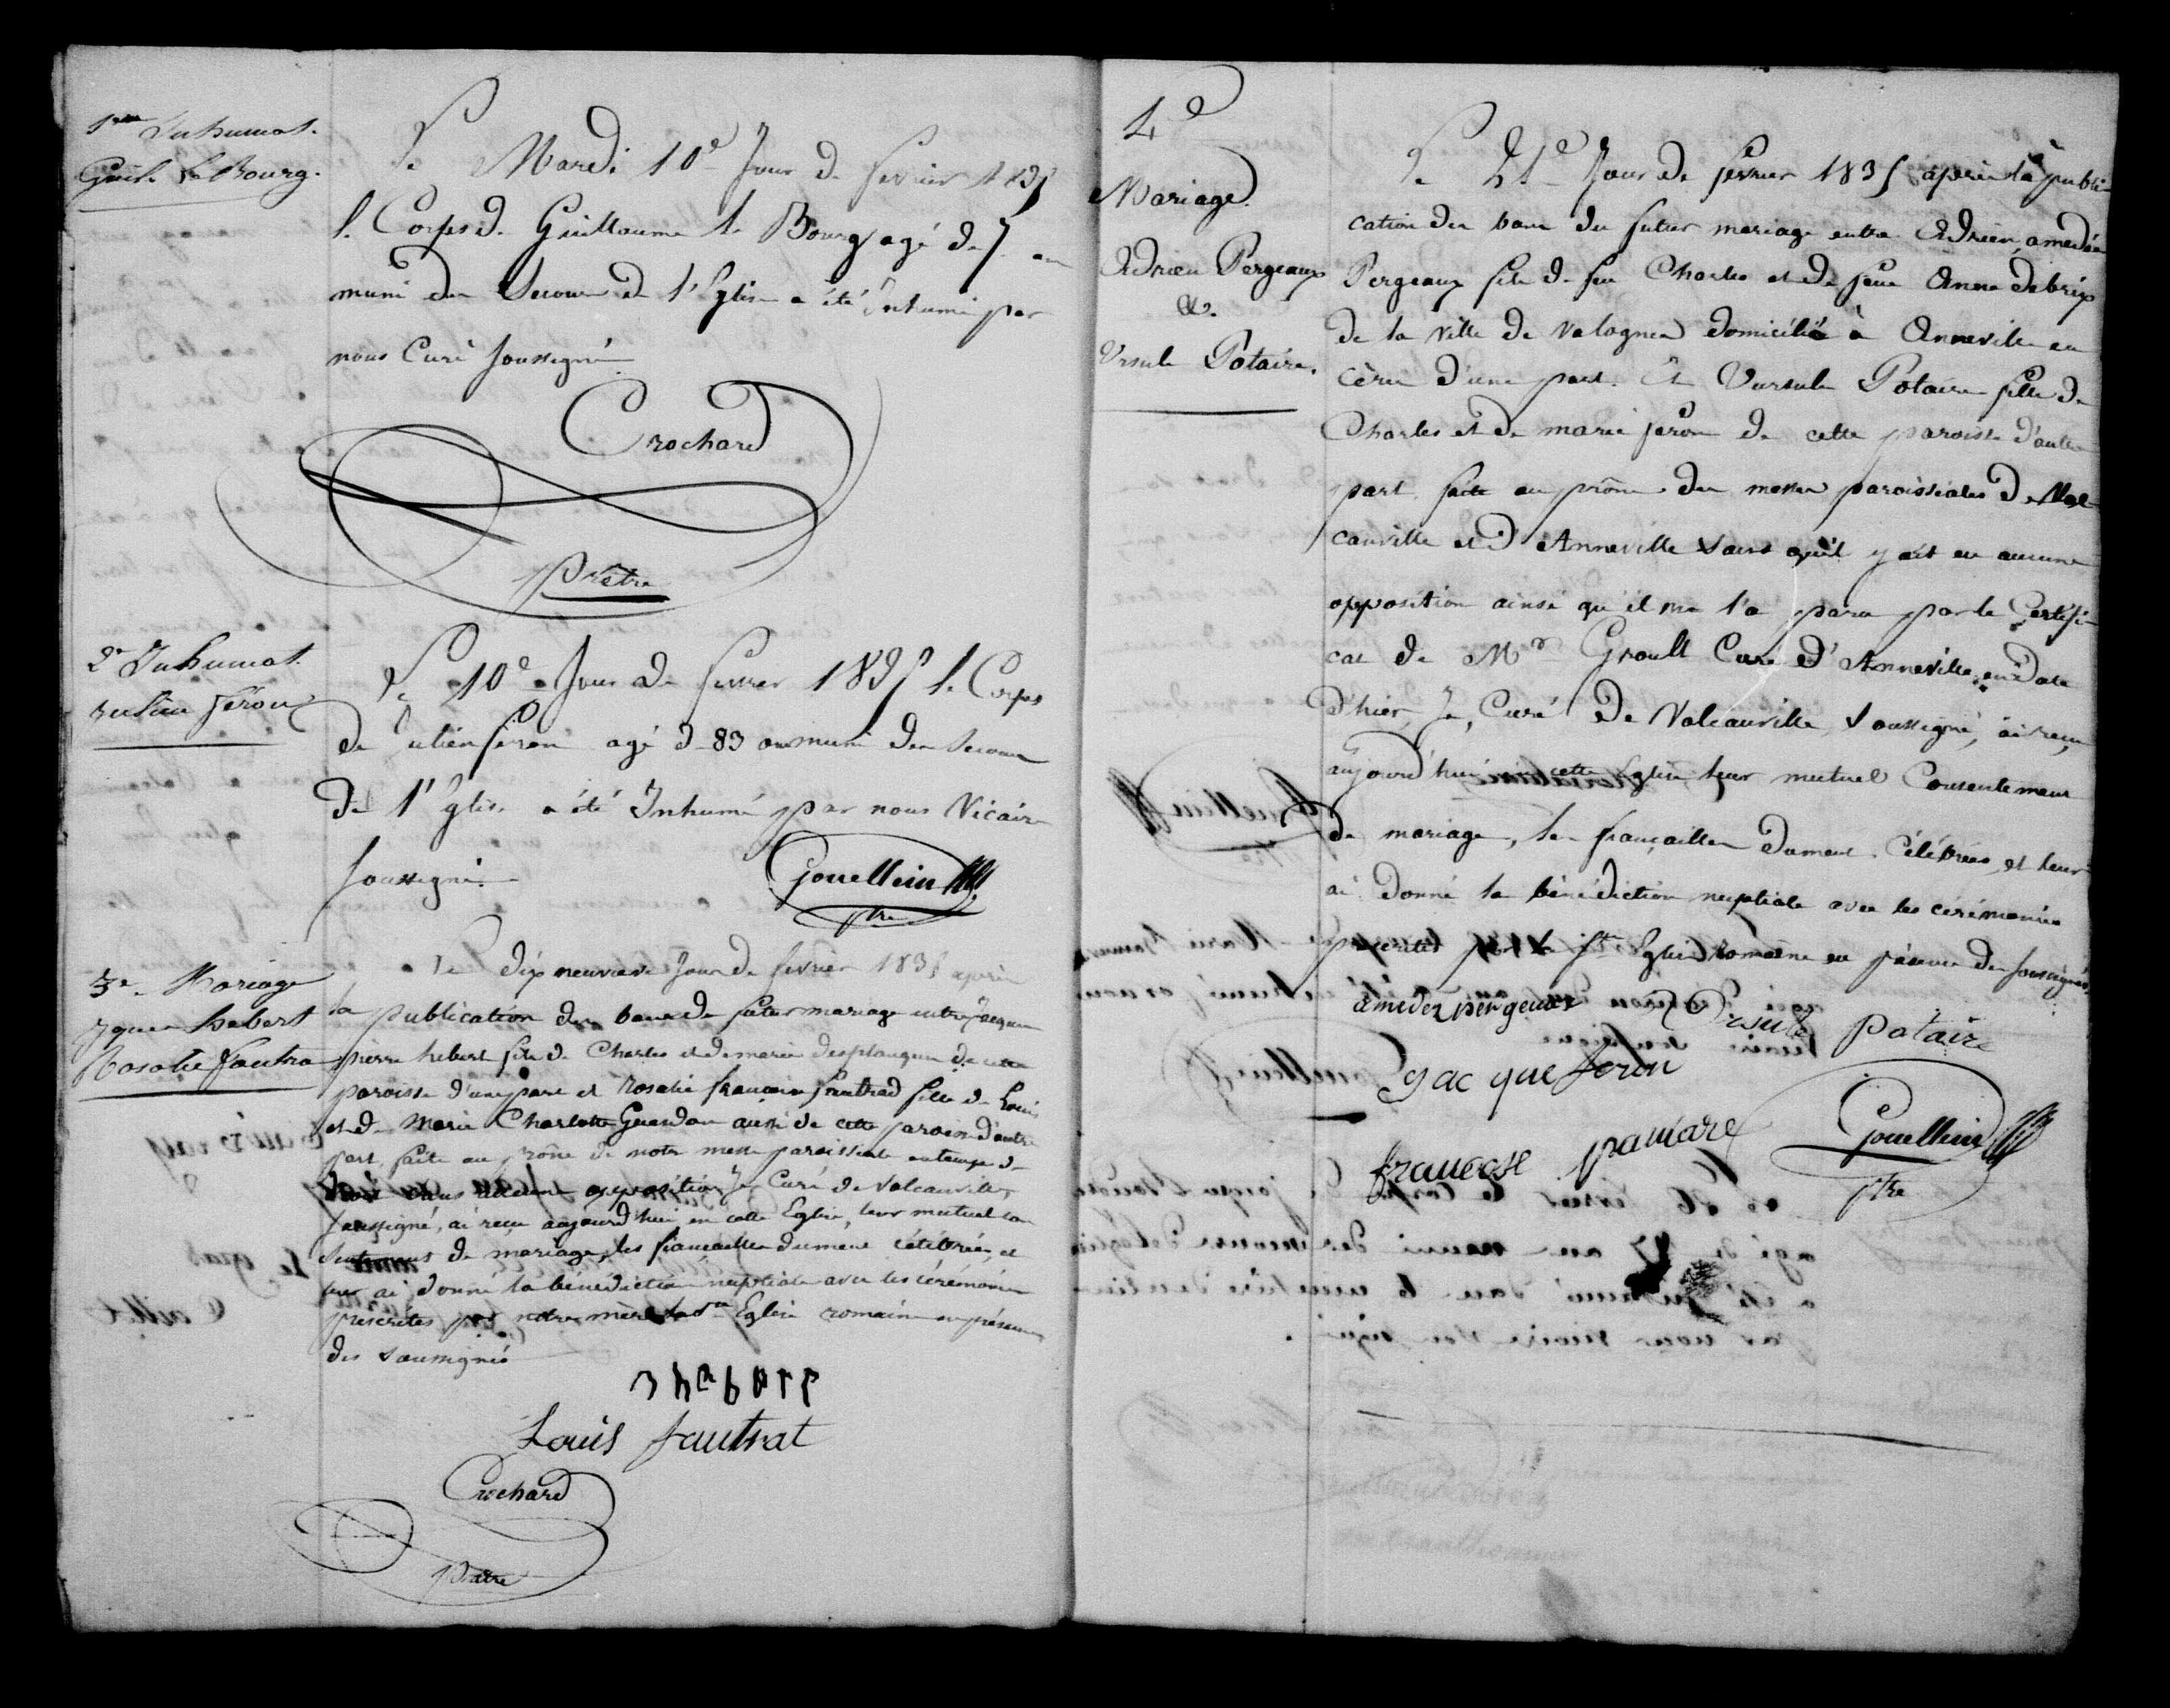 1ere Inhumat.
Guil. LeBourg.
Le Mardi 10e Jour de fevrier 1835
le Corps de Guillaume le Bourg agé de 7. an
muni des Secours de l'Eglise a été Inhumé par
nous Curé soussigné
Crochard
Prêtre
2e Inhumat.
Julien féron
Le 10e Jour de fevrier 1835 le Corps
de Julien féron agé de 83 ans muni des Secours
de l'Eglise a été Inhumé par nous Vicaire
soussigné.
Gouellain
ptre
3e Mariage
Jques hebert
Rosalie fautra
Le dix neuvieme Jour de fevrier 1835 après
la publication des bans du futur mariage entre Jacques
pierre hebert fils de Charles et de marie desplanques de cette
paroisse d'une part et rosalie françoise fautrad fille de Louis
et de Marie Charlotte Gueudon aussi de cette paroisse d'autre
part, faite au prône de notre messe paroissiale en temps de
sans aucune opposition Je Curé de Valcanville
soussigné, ai reçu aujourd'hui en cette Eglise, leur mutuel con
sentement de mariage, les fiançailles dument célébrées, et
leur ai donné la bénédiction nuptiale avec les cérémonies
prescrites par notre mère la Ste Eglise romaine en présence
des soussignés
Louis fautrat
Crochard
Prêtre
4e
Mariage
Adrien Pergeaux
&.
Ursule Potaire.
Le 21e Jour de fevrier 1835 après la publi
cation des bans du futur mariage entre Adrien, amedée
Pergeaux fils de feu Charles et de feue Anne debrix
de la ville de valognes domicilié à Anneville en
cères d'une part. Et Vursule Potaire fille de
Charles et de marie féron de cette paroisse d'autre
part faite au prône des messes paroissiales de Val
canville et d'Anneville sans qu'il y ait eu aucune
opposition ainsi qu'il me l'a paru par le Certifi
cat de Mr Groult Curé d'Anneville en Date
d'hier, Je, Curé De Valcanville, soussigné, ai reçu
aujourd'hui en cette Eglise leur mutuel Consentement
de mariage, les fiançailles dument célébrées et leur
ai donné la bénédiction nuptiale avec les cérémonies
prescrites par la Ste Eglise romaine en présence des soussignés.
amedez pergeaux Ursule potaire
gac que feron
francose pautare
Gouellain
ptre